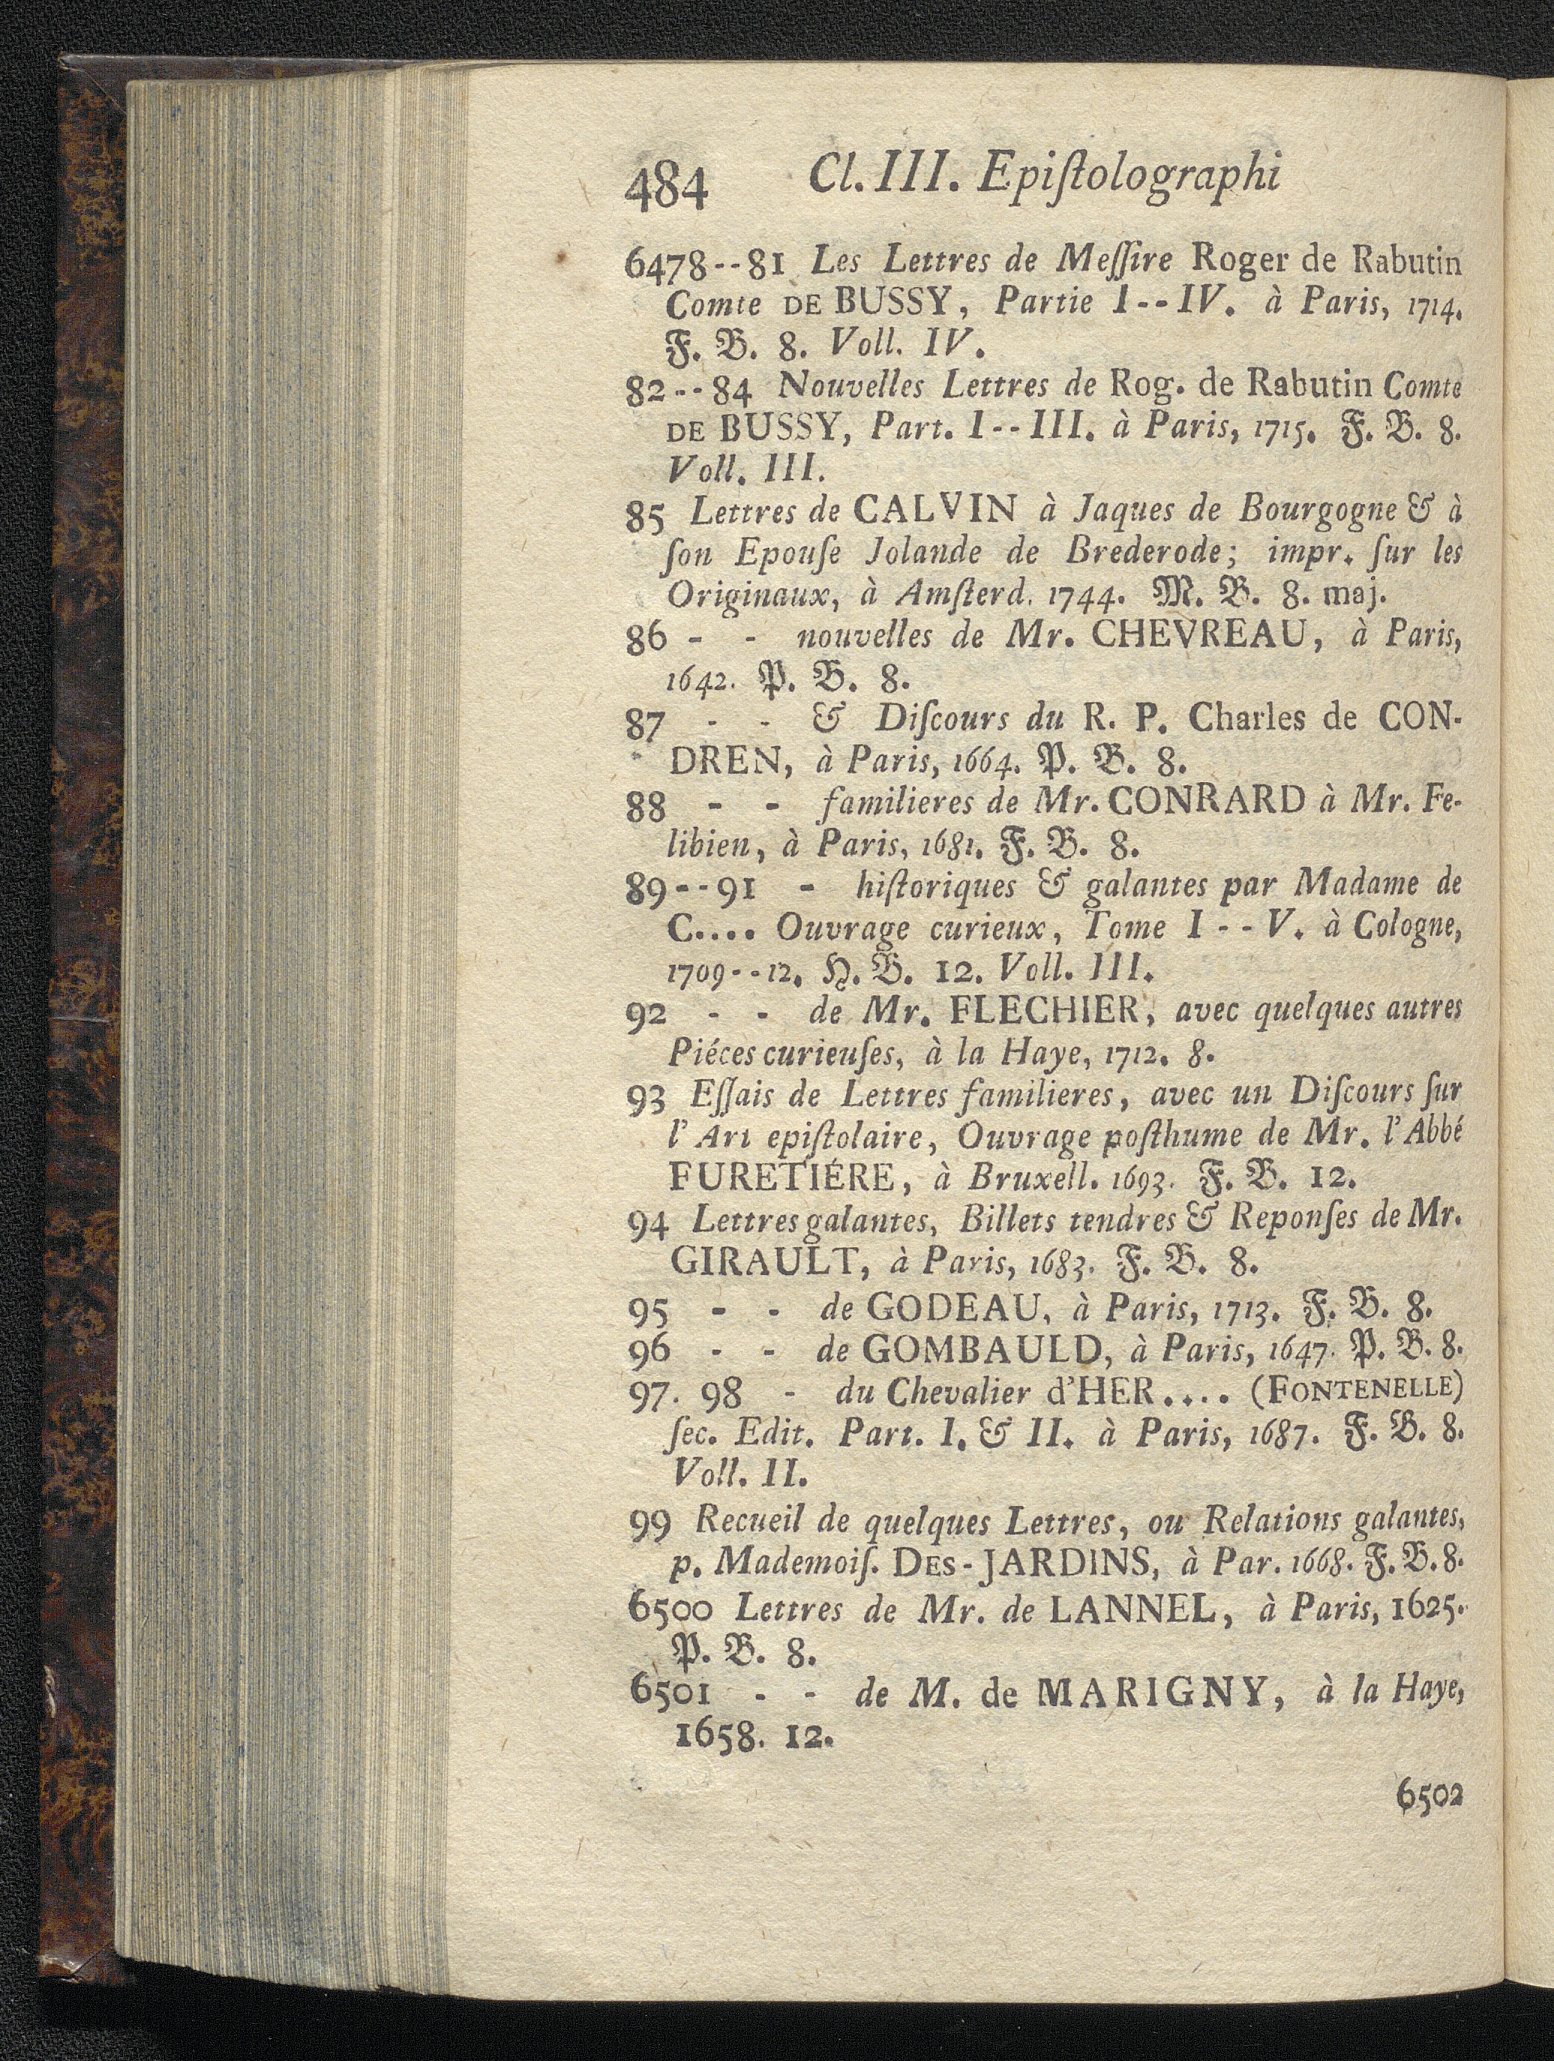 484 Cl. III. Epiſtolographi
6478--81 Les Lettres de Meſſire Roger de Rabutin
Comte DE BUSSY, Partie I--IV. à Paris, 1714.
F. B. 8. Voll. IV.
82--84 Nouvelles Lettres de Rog. de Rabutin Comte
DE BUSSY, Part. I--III. à Paris, 1715. F. B. 8.
Voll. III.
85 Lettres de CALVIN à Jaques de Bourgogne & à
ſon Epouſe Jolande de Brederode; impr. ſur les
Originaux, à Amſterd. 1744. M. B. 8. maj.
86 - - nouvelles de Mr. CHEVREAU, à Paris,
1642. P. B. 8.
87 - - & Diſcours du R. P. Charles de CON-
DREN, à Paris, 1664. P. B. 8.
88 - - familieres de Mr. CONRARD à Mr. Fe-
libien, à Paris, 1681. F. B. 8.
89--91 - hiſtoriques & galantes par Madame de
C.... Ouvrage curieux, Tome I--V. à Cologne,
1709--12. H. B. 12. Voll. III.
92 - - de Mr. FLECHIER, avec quelques autres
Piéces curieuſes, à la Haye, 1712. 8.
93 Eſſais de Lettres familieres, avec un Diſcours ſur
l'Art epiſtolaire, Ouvrage poſthume de Mr. l'Abbé
FURETIÉRE, à Bruxell. 1693. F. B. 12.
94 Lettres galantes, Billets tendres & Reponſes de Mr.
GIRAULT, à Paris, 1683. F. B. 8.
95 - - de GODEAU, à Paris, 1713. F. B. 8.
96 - - de GOMBAULD, à Paris, 1647. P. B. 8.
97. 98 - du Chevalier d'HER.... (FONTENELLE)
ſec. Edit. Part. I. & II. à Paris, 1687. F. B. 8.
Voll. II.
99 Recueil de quelques Lettres, ou Relations galantes,
p. Mademoiſ. DES-JARDINS, à Par. 1668. F. B. 8.
6500 Lettres de Mr. de LANNEL, à Paris, 1625.
P. B. 8.
6501 - - de M. de MARIGNY, à la Haye,
1658. 12.
6502